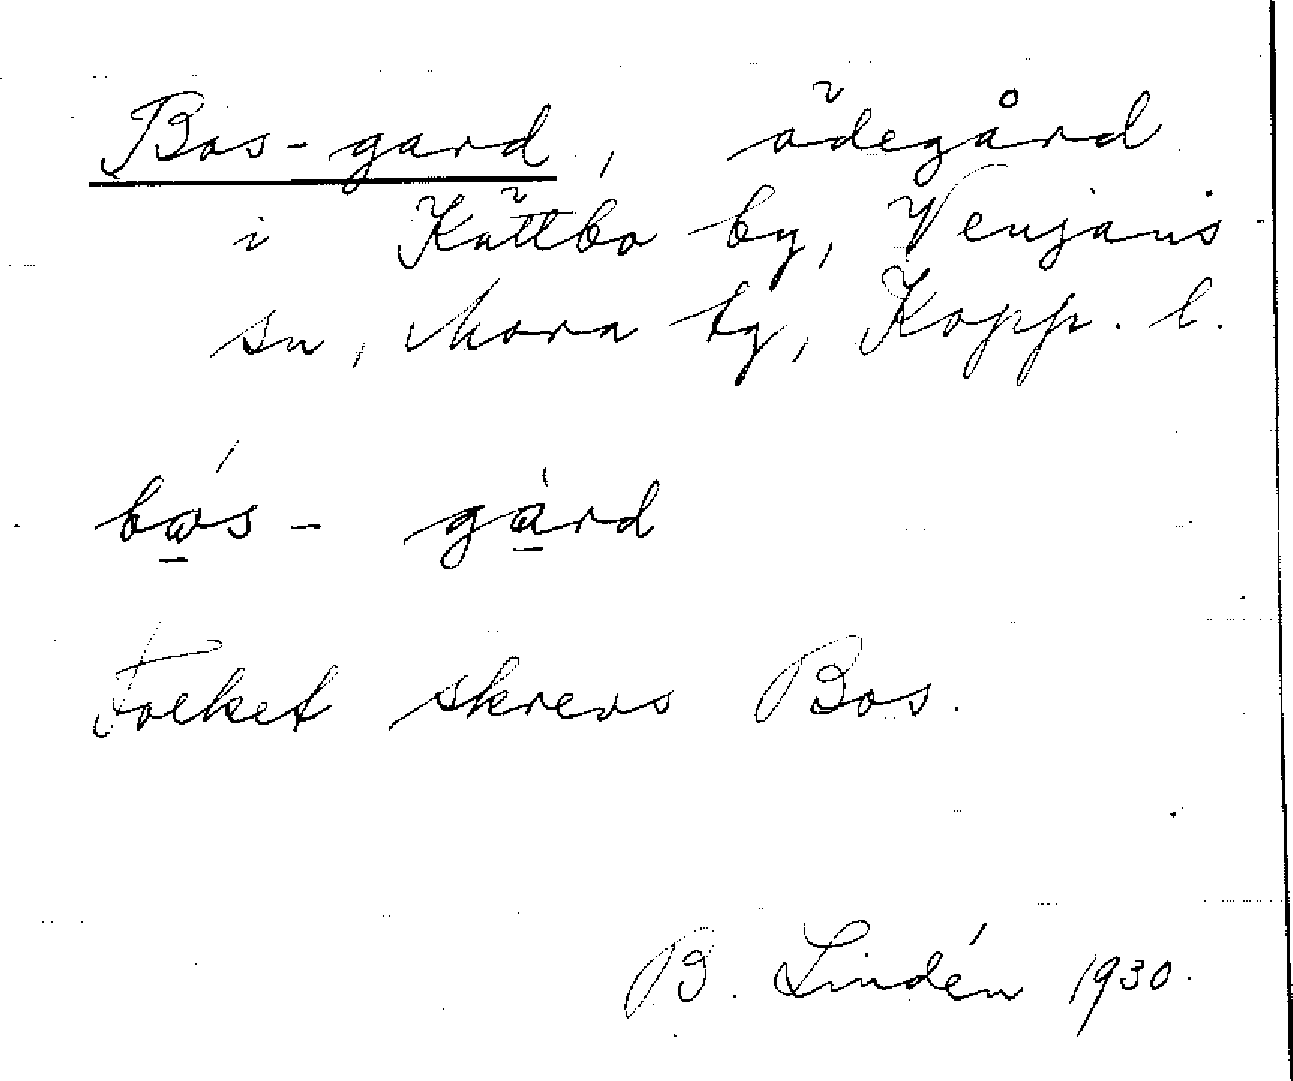 Bos-gard, ödegård
i Kättbo by, Venjans
sn, Mora tg, Kopp. l.
bo̲s - gà̲rd
Folket skrevs Bos.
B. Lindén 1930.